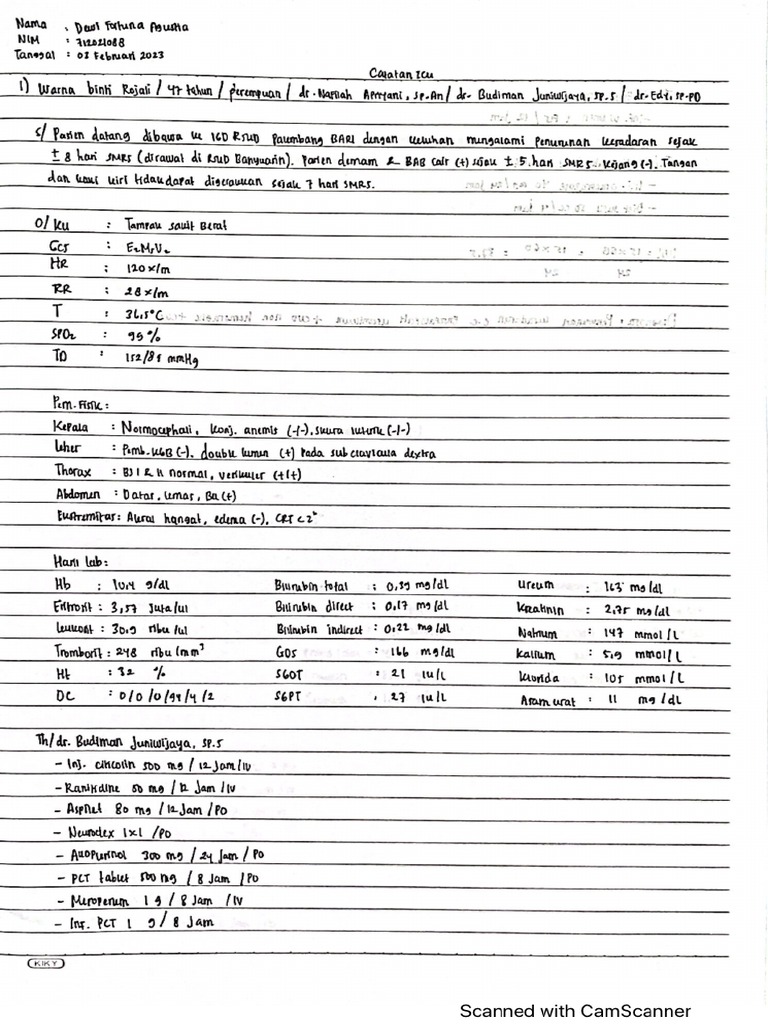 Nama : Dewi Fortuna Agustia
NIM : 712021088
Tanggal : 03 Februari 2023
Catatan ICU
1) Warna binti Rojali / 47 tahun / perempuan / dr. Apriyani, SP.An / dr. Budiman Juniwijaya, SP.S / dr. Edy, SP.PD
S/ Pasien datang dibawa ke IGD RSUD Palembang BARI dengan keluhan mengalami penurunan kesadaran sejak
± 8 hari SMRS (dirawat di RSUD Banyuasin). Pasien demam & BAB cair (+) sejak ± 5 hari SMRS. Kejang (-). Tangan
dan kaki kiri tidak dapat digerakkan sejak 7 hari SMRS.
O/ KU : Tampak sakit Berat
GCS : E2M5V2
HR : 120 x/m
RR : 28 x/m
T : 36,5°C
SPO2 : 99 %
TD : 152/85 mmHg
Pem. Fisik :
Kepala : Normocephali, konj. anemis (-/-), sklera ikterik (-/-)
Leher : Pemb. KGB (-), double lumen (+) pada subclavicula dextra
Thorax : BJ I & II normal, vesikuler (+/+)
Abdomen : Datar, lemas, BU (+)
Ekstremitas : Akral hangat, edema (-), CRT < 2"
Hasil lab :
Hb : 10,4 g/dl Bilirubin total : 0,39 mg/dl Ureum : 163 mg/dl
Eritrosit : 3,57 Juta/ul Bilirubin direct : 0,17 mg/dl Kreatinin : 2,75 mg/dl
Leukosit : 30,9 ribu/ul Bilirubin indirect : 0,22 mg/dl Natrium : 147 mmol/L
Trombosit : 248 ribu/mm³ GDS : 166 mg/dl Kalium : 5,9 mmol/L
Ht : 32 % SGOT : 21 IU/L Klorida : 105 mmol/L
DC : 0/0/0/94/4/2 SGPT : 27 IU/L Asam urat : 11 mg/dL
Th/ dr. Budiman Juniwijaya, SP.S
- Inj. citicolin 500 mg / 12 Jam / IV
- Ranitidine 50 mg / 12 Jam / IV
- Aspilet 80 mg / 12 Jam / PO
- Neurodex 1x1 / PO
- Allopurinol 300 mg / 24 Jam / PO
- PCT tablet 500 mg / 8 Jam / PO
- Meropenem 1 g / 8 Jam / IV
- Inf. PCT 1 g / 8 Jam
KIKY
Scanned with CamScanner